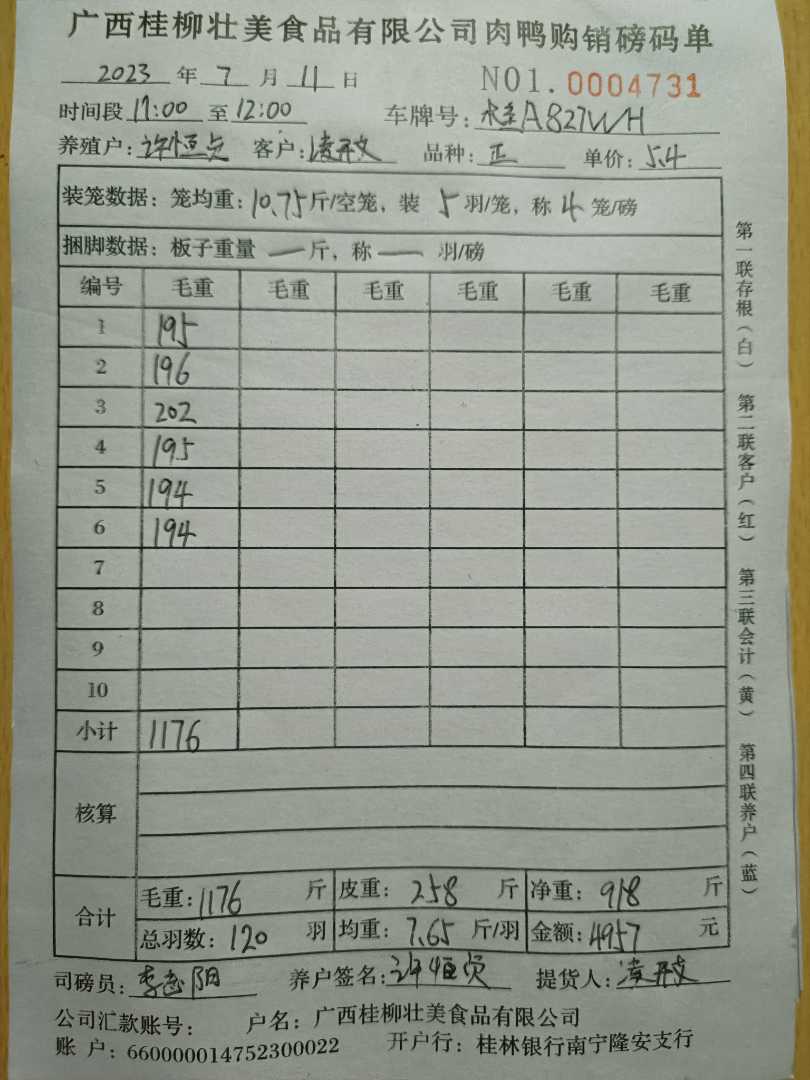 广西桂柳壮美食品有限公司肉鸭购销磅码单
2023 年 7 月 11 日 NO1. 0004731
时间段 11:00 至 12:00 车牌号: 桂A827WH
养殖户: 许恒贞 客户: 凌开文 品种: 正 单价: 5.4
装笼数据: 笼均重: 10.75斤/空笼, 装 5 羽/笼, 称 4 笼/磅
捆脚数据: 板子重量 — 斤, 称 — 羽/磅
编号 毛重 毛重 毛重 毛重 毛重 毛重
1 195
2 196
3 202
4 195
5 194
6 194
7
8
9
10
小计 1176
核算
合计 毛重: 1176 斤 皮重: 258 斤 净重: 918 斤
总羽数: 120 羽 均重: 7.65 斤/羽 金额: 4957 元
司磅员: 李 阳 养户签名: 许恒贞 提货人: 凌开文
公司汇款账号: 户名: 广西桂柳壮美食品有限公司
账 户: 660000014752300022 开户行: 桂林银行南宁隆安支行
第一联存根(白) 第二联客户(红) 第三联会计(黄) 第四联养户(蓝)